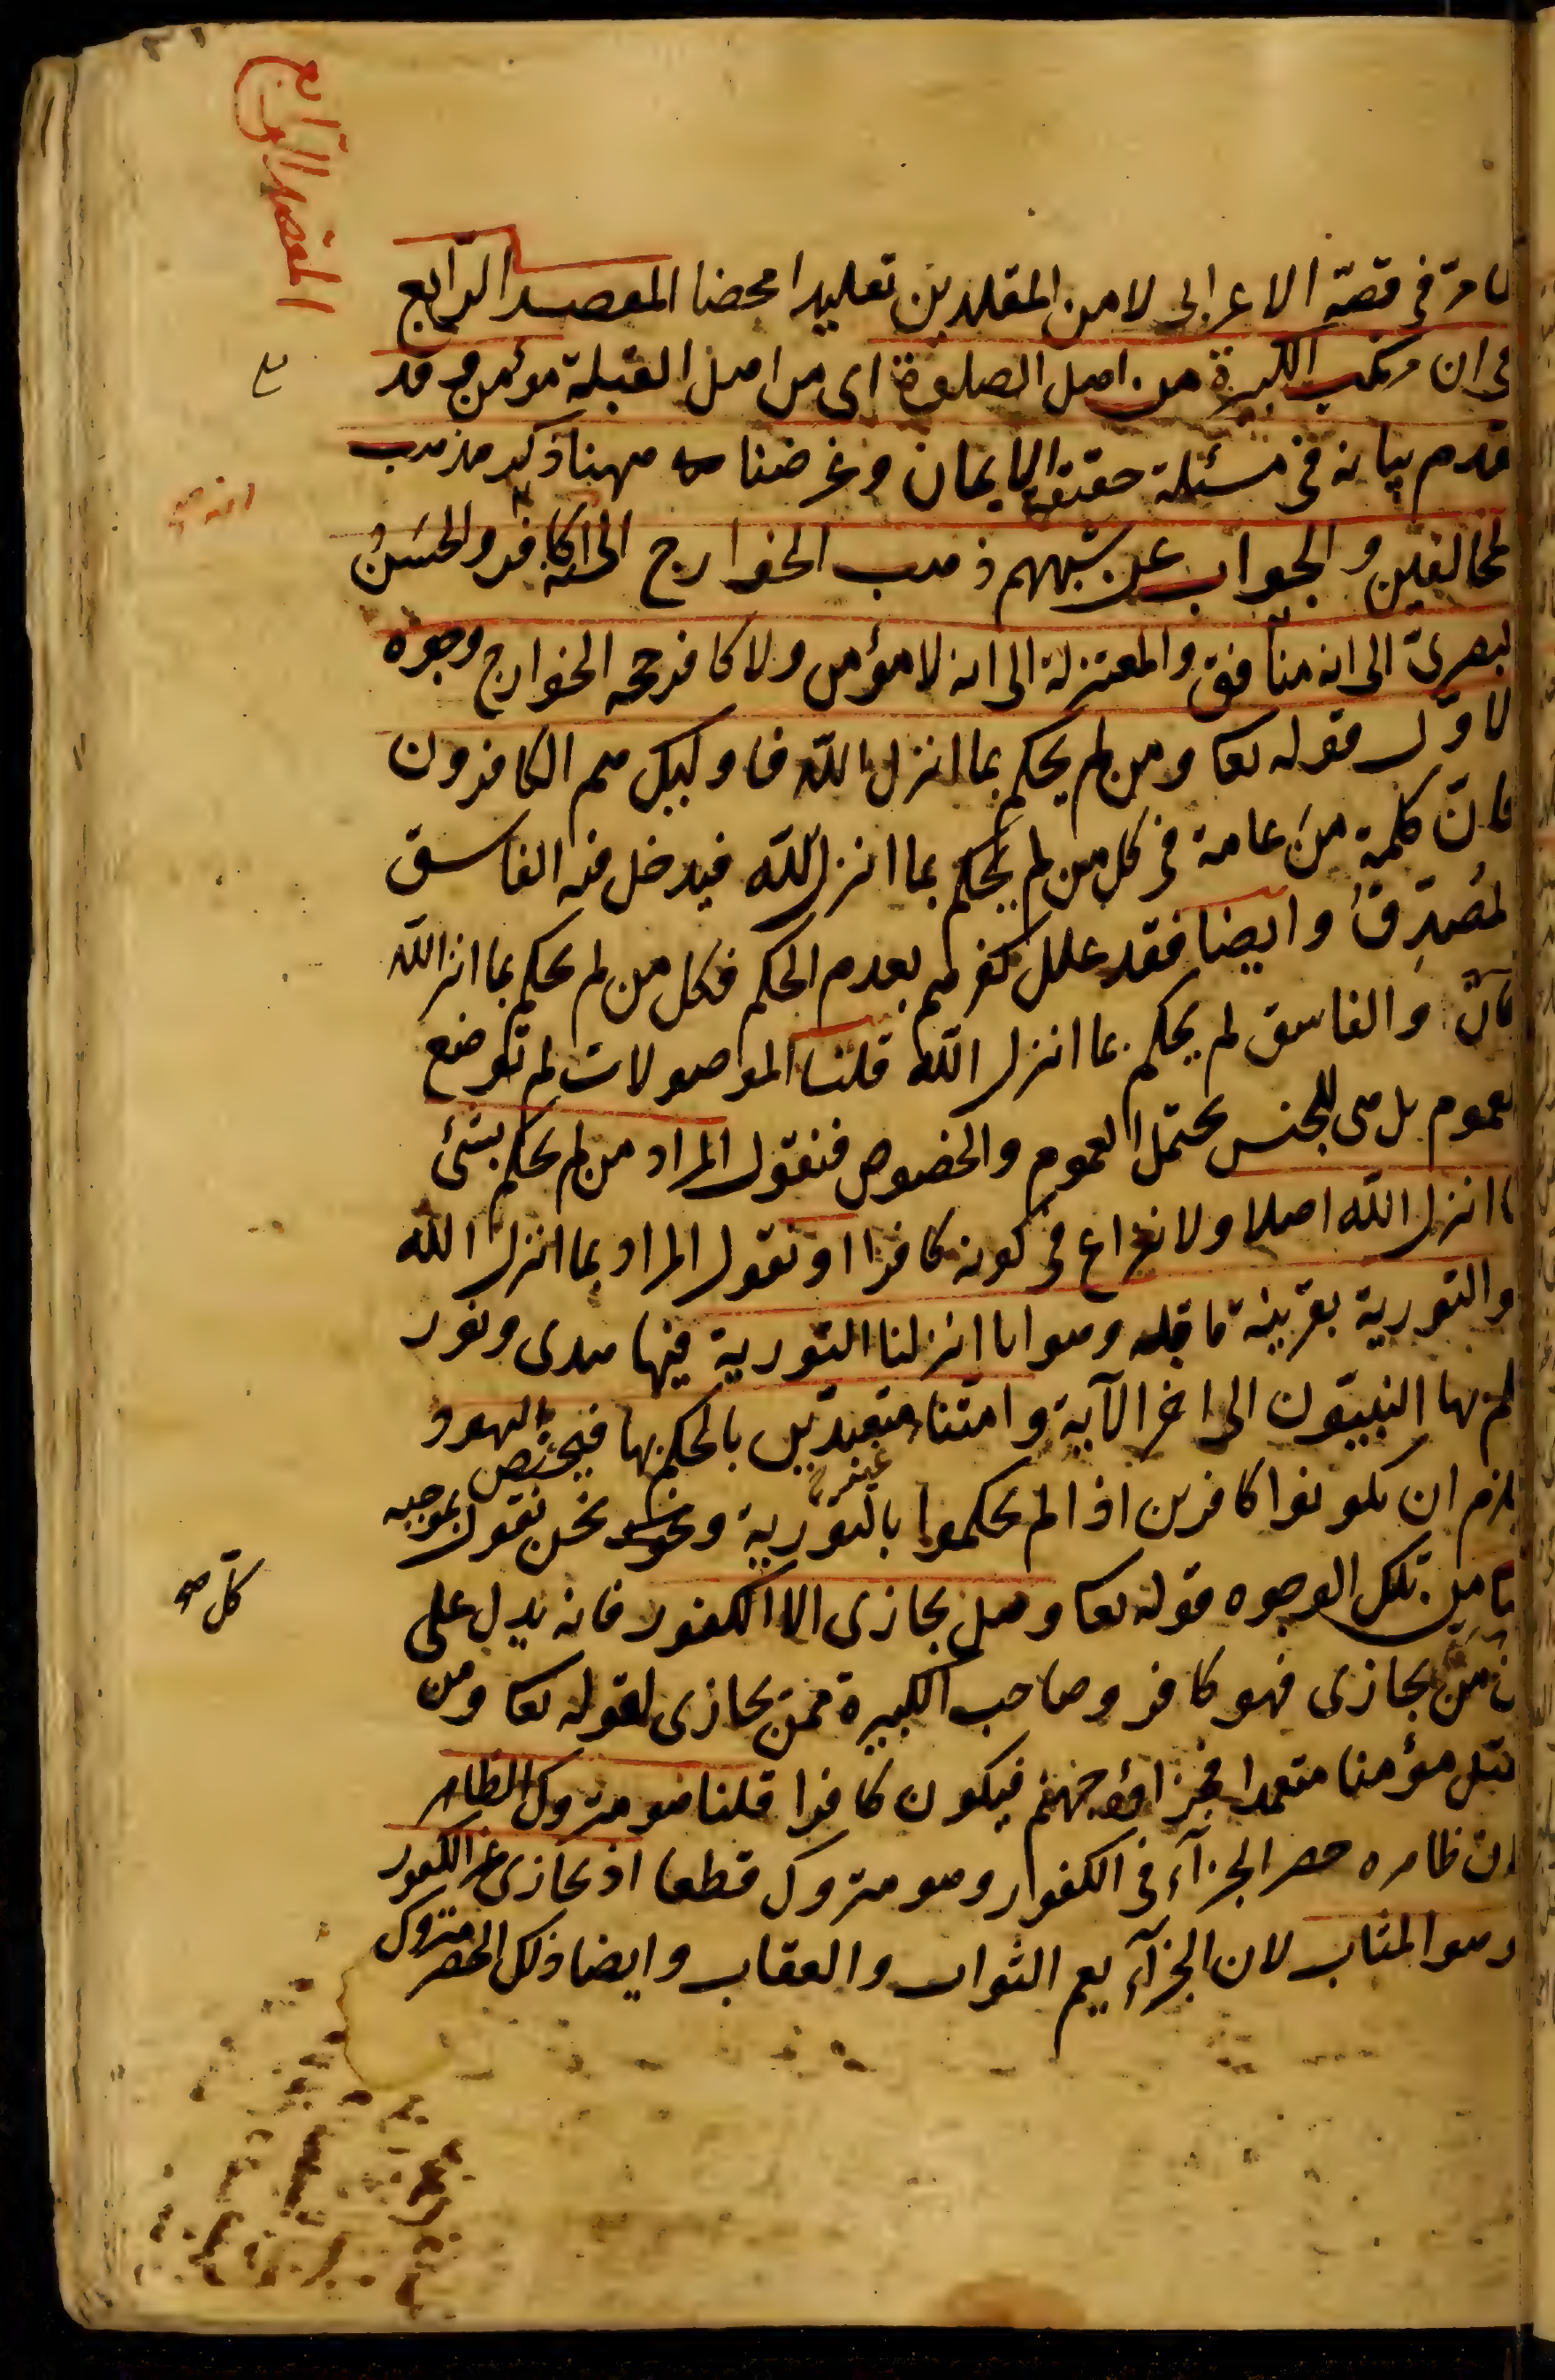 المقصد الرابع
كما مرّ فى قصّة الاعرابى لا من المقلدين تقليدا محضا المقصد الرابع
فى ان مرتكب الكبيرة من اهل الصلوة اى من اهل القبلة مؤمن وقد
تقدم بيانه فى مسئلة حقيقة الايمان وغرضنا ههنا ذكر مذهب
المخالفين والجواب عن شبههم ذهب الخوارج الى انه كافر والحسن
البصرىّ الى انه منافق والمعتزلة الى انه لا مؤمن ولا كافر حجة الخوارج وجوه
الاوّل قوله تعا ومن لم يحكم بما انزل الله فاولئك هم الكافرون
فانّ كلمة من عامة فى كل من لم يحكم بما انزل الله فيدخل فيه الفاسق
المُصَدِّقُ وايضا فقد علل كفرهم بعدم الحكم فكل من لم يحكم بما انزل الله
كان والفاسق لم يحكم بما انزل الله قلنا الموصولات لم توضع
للعموم بل هى للجنس يحتمل العموم والخصوص فنقول المراد من لم يحكم بشئ
مما انزل الله اصلا ولا نزاع فى كونه كافرا او نقول المراد بما انزل الله
هو التورية بقرينة ما قبله وهو انا انزلنا التورية فيها هدى ونور
يحكم بها النبيّون الى اخر الآية وامتنا غير متعبدين بالحكم بها فيختص باليهود
فيلزم ان يكونوا كافرين اذا لم يحكموا بالتورية ونحن نقول بموجبه
الثانى من تلك الوجوه قوله تعا وهل يجازى الا الكفور فانه يدل على
ان كل من يجازى فهو كافر وصاحب الكبيرة ممن يجازى لقوله تعا ومن
يقتل مؤمنا متعمدا فجزاؤه جهنم فيكون كافرا قلنا هو متروك الظاهر
لان ظاهره حصر الجزاء فى الكفور وهو متروك قطعا اذ يجازى غير الكفور
وهو المثاب لان الجزاء يعم الثواب والعقاب وايضا ذلك الحصر متروك
انه صح
كل صح